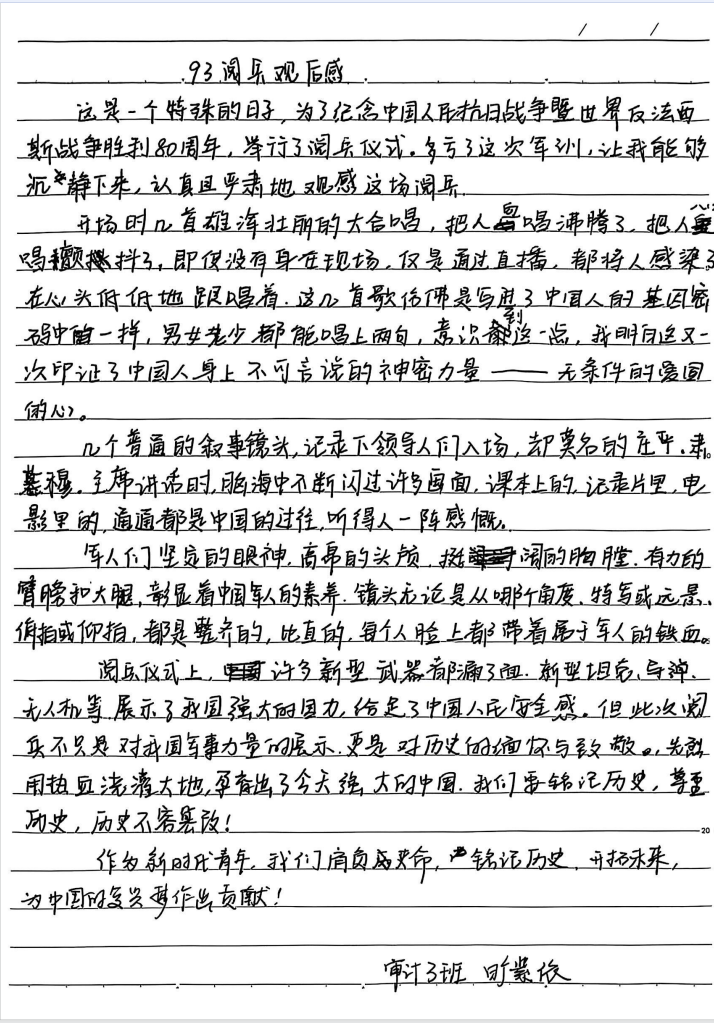 93阅兵观后感
这是一个特殊的日子,为了纪念中国人民抗日战争暨世界反法西
斯战争胜利80周年,举行了阅兵仪式。多亏了这次军训,让我能够
沉静下来,认真且严肃地观感这场阅兵.
开场时几首雄浑壮丽的大合唱,把人唱沸腾了,把人心
唱颤抖了,即使没有身在现场,仅是通过直播,都将人感染了
在心头低低地跟唱着.这几首歌仿佛是写进了中国人的基因密
码中一样,男女老少都能唱上两句,意识到这一点,我明白这又一
次印证了中国人身上不可言说的神密力量——无条件的爱国
的心。
几个普通的叙事镜头,记录下领导人们入场,却莫名的庄严、肃
穆.主席讲话时,脑海中不断闪过许多画面,课本上的,记录片里,电
影里的,通通都是中国的过往,听得人一阵感慨。
军人们坚定的眼神,高昂的头颅,挺阔的胸膛,有力的
臂膀和大腿,彰显着中国军人的素养.镜头无论是从哪个角度、特写或远景、
俯拍或仰拍,都是整齐的,比直的,每个人脸上都带着属于军人的铁血。
阅兵仪式上,许多新型武器都漏了面.新型坦克、导弹、
无人机等,展示了我国强大的国力,给足了中国人民安全感。但此次阅
兵不只是对我国军事力量的展示,更是对历史的缅怀与致敬。先烈
用热血浇灌大地,孕育出了今天强大的中国.我们要铭记历史,尊重
历史,历史不容篡改!
20
作为新时代青年,我们肩负起使命,铭记历史,开拓未来,
为中国的复兴梦作出贡献!
审计3班